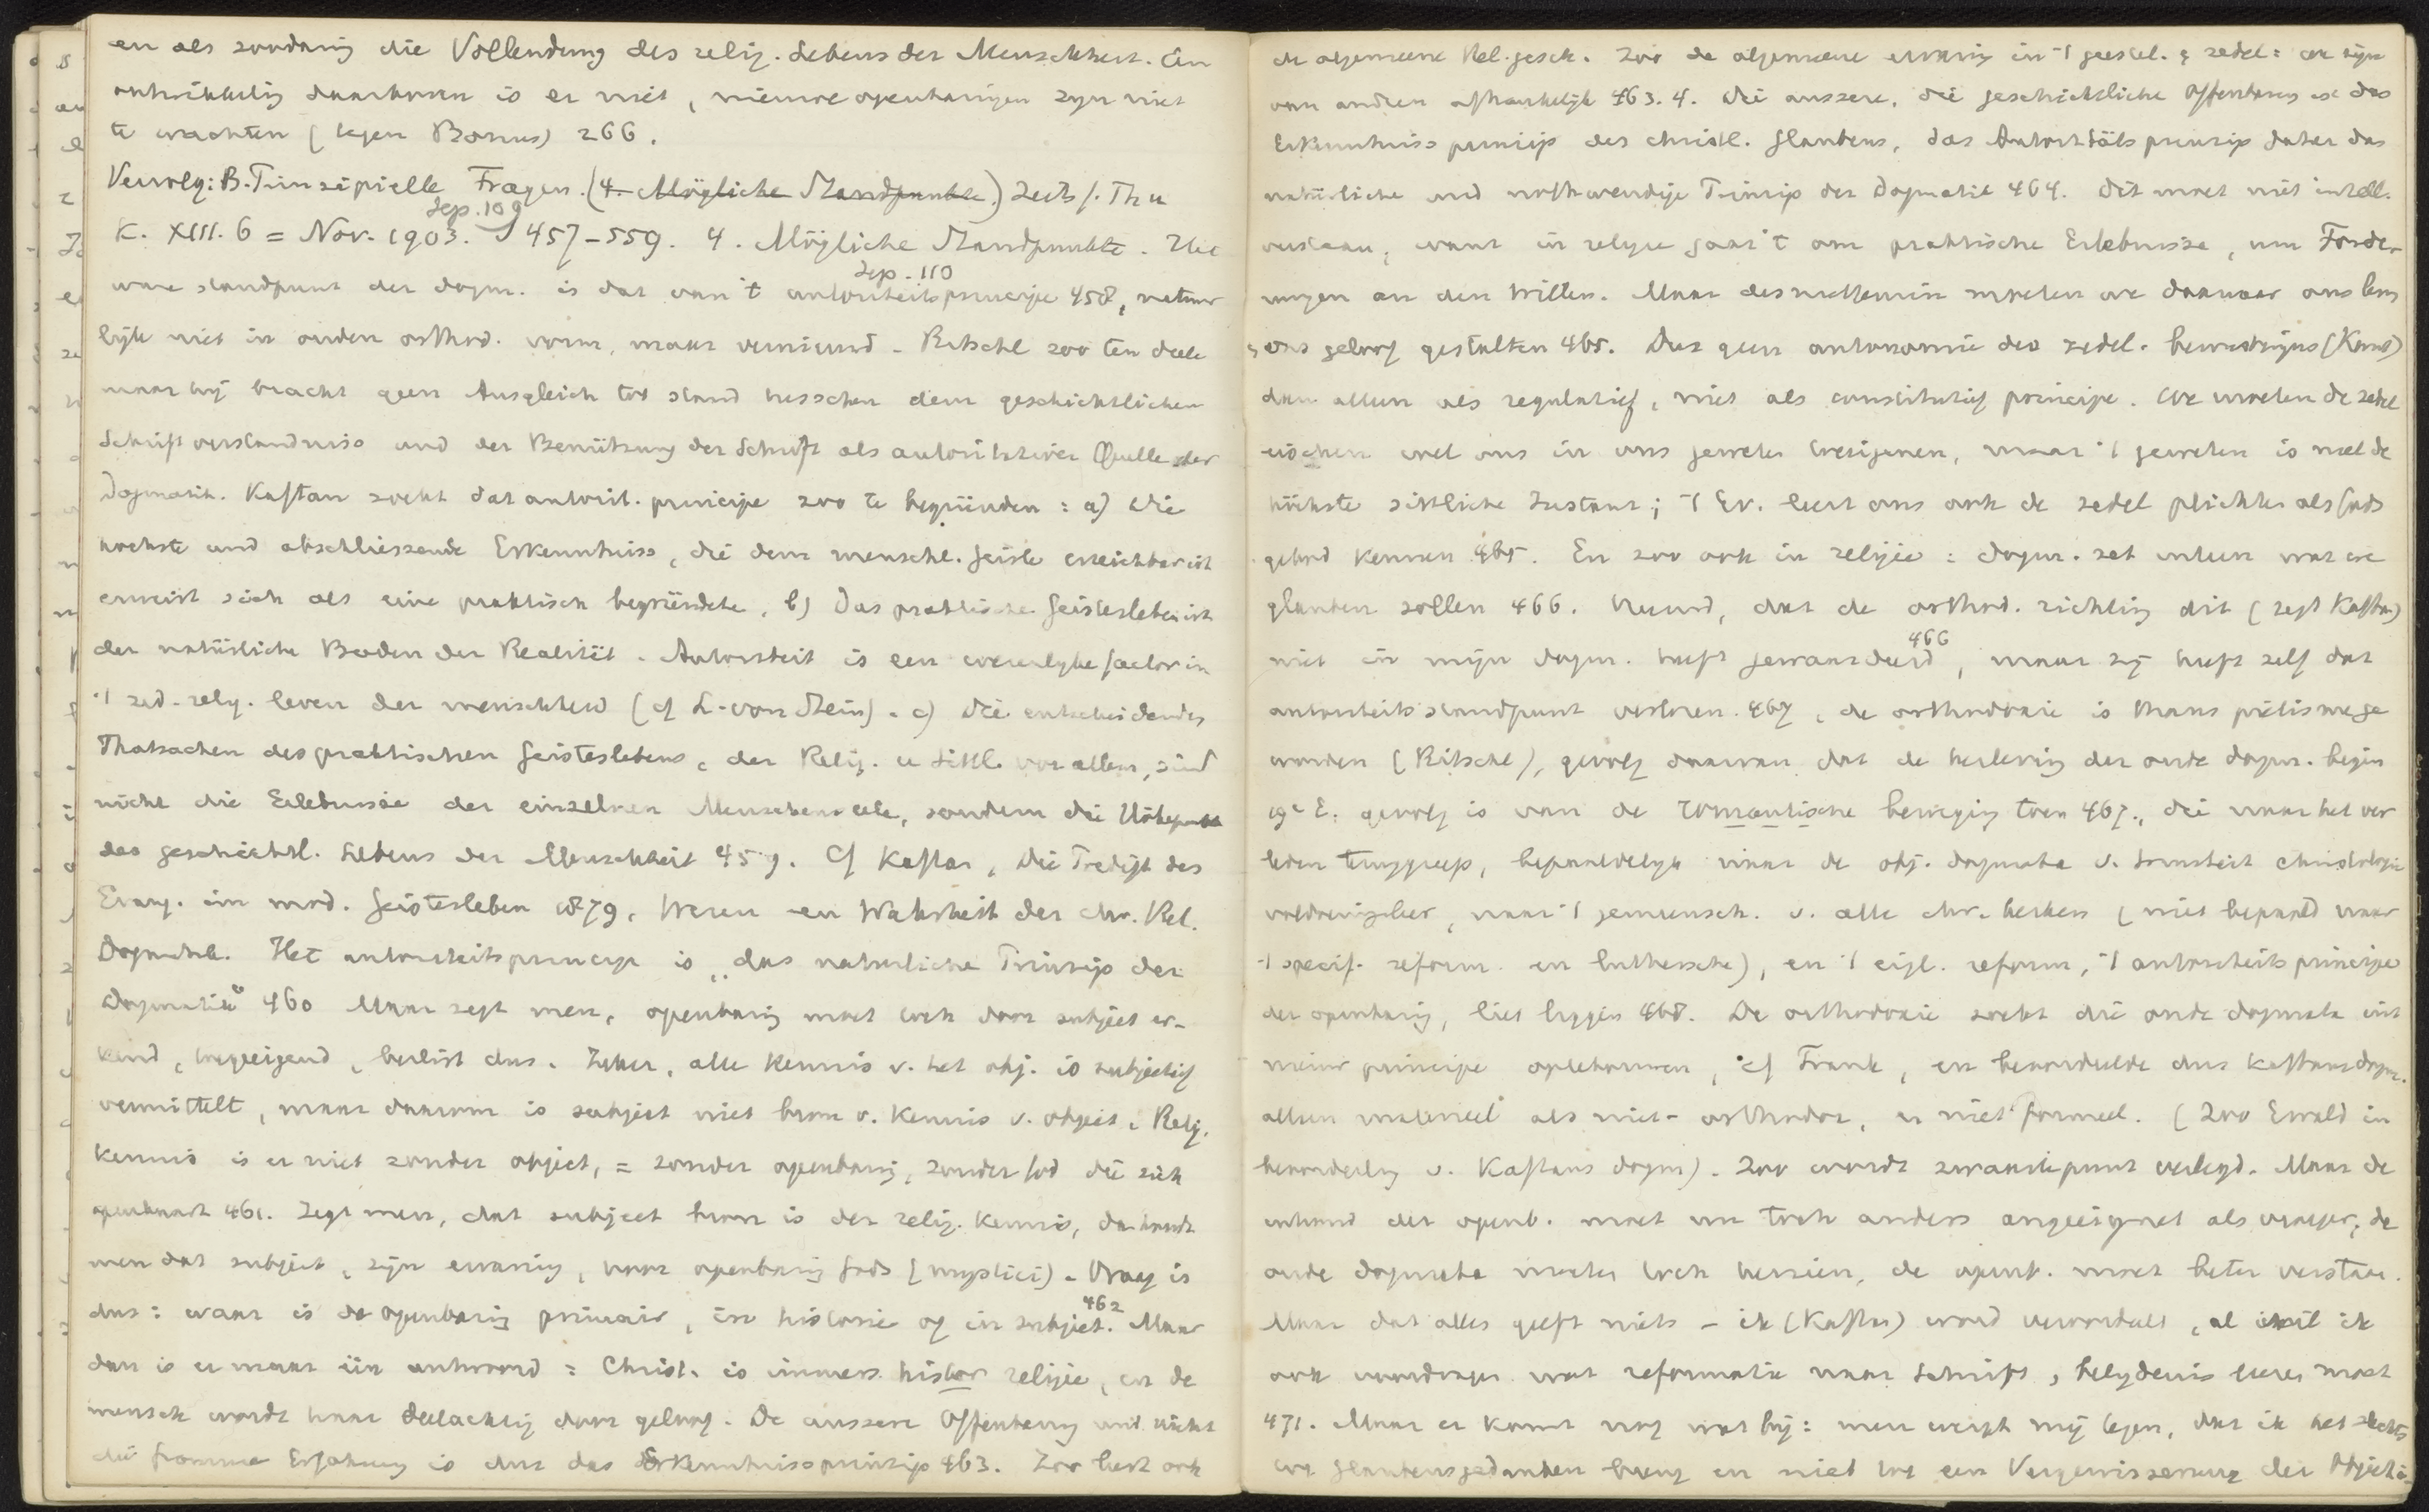 en als zoodanig die Vollendung des relig. Lebens der Menschheit. Een
ontwikkeling daarboven is er niet, nieuwe openbaringen zyn niet
te wachten (tegen Bonus) 266.
Vervolg: B. Prinzipielle Fragen. (4. Mögliche Standpunkte.) Zeits f. Th u
K. XIII. 6 = Nov. 1903. 457-559. 4. Mögliche Standpunkte. Het
ware standpunt der dogm. is dat van 't autoriteitsprincipe 458, natuur
lyk niet in ouden orthod. vorm, maar vernieuwd. Ritschl zoo ten deele
maar hij bracht geen Ausgleich tot stand tusschen dem geschichtlichen
Schriftverständniss und der Benützung der Schrift als autoritativer Quelle der
Dogmatik. Kaftan zoekt dat autorit. principe zoo te begründen: a) Die
hochste und abschliessende Erkenntniss, die dem menschl. Geiste erreichbar ist
erweist sich als eine praktisch begründete, b) Das praktische Geistesleben ist
der natürliche Boden der Realität. Autoriteit is een wezenlyke factor in
't zed-relig. leven der menschheid (cf L. von Stein). c) Die entscheidenden
Thatsachen des praktischen Geisteslebens, der Relig. u Sittl. vor allem, sind
nicht die Erlebnisse der einzelnen Menschenseele, sondern die Höhepunkte
des geschichtl. Lebens der Menschheit 459. Cf Kaftan, Die Predigt des
Evang. im mod. Geistesleben 1879, Wezen en Wahrheit der chr. Rel.
Dogmatik. Het autoriteitsprincipe is „das naturliche Prinzip der
Dogmatik" 460 Maar zegt men, openbaring moet toch door subject er-
kend, toegeeigend, beslist dus. Zeker, alle kennis v. het obj. is subjectief
vermittelt, maar daarom is subject niet bron v. kennis v. object. Relig.
kennis is er niet zonder object, = zonder openbaring, zonder God die zich
openbaart 461. Zegt men, dat subject bron is der relig. kennis, dan houdt
men dat subject, zijn ervaring, voor openbaring Gods (mystici). Vraag is
dus: waar is de openbaring primair, in historie of in subject. 462 Maar
dan is er maar één antwoord: Christ. is immers histor religie, en de
mensch wordt haar deelachtig door geloof. De äussere Offenbarung und nicht
die fromme Erfahrung is dus das Erkenntnissprinzip 463. Zoo leert ook
de algemeene Rel.gesch. Zoo de algemeene ervaring in 't geestel. & zedel: we zijn
van andren afhankelijk 463.4. Die aussere, die geschichtliche Offenbarung ist das
Erkenntnissprinzip des christl. Glaubens, das Autoritätsprinzip daher das
natürliche und nothwendige Prinzip der Dogmatik 464. Dit moet niet intell.
verstaan, want in religie gaat 't om praktische Erlebnisse, um Forde-
rungen an den Willen. Maar desniettemin moeten we daarnaar ons leven
& ons geloof gestalten 465. Dus geen autonomie des zedel. bewustzijns (Kant)
dan alleen als regulatief, niet als constitutief principe. We moeten de zedel
eischen wel ons in ons geweten toeeigenen, maar 't geweten is niet de
höchste sittliche Instanz; 't Ev. leert ons ook de zedel plichten als Gods
gebod kennen 465. En zoo ook in religie: dogm. zet uiteen wat we
glauben sollen 466. Vreemd, dat de orthod. richting dit (zegt Kaftan)
niet in mijn dogm. heeft gewaardeerd 466, maar zij heeft zelf dat
autoriteitsstandpunt verloren. 467, de orthodoxie is thans piëtisme ge
worden (Ritschl), gevolg daarvan dat de herleving der oude dogm. begin
19e E. gevolg is van de romantische beweging toen 467., die naar het ver
leden teruggreep, bepaaldelyk naar de obj. dogmata v. triniteit christologie
voldoening leer, naar 't gemeensch. v. alle chr. kerken (niet bepaald naar
't specif. reform. en luthersche), en 't eigl. reform., 't autoriteitsprincipe
der openbaring, liet liggen 468. De orthodoxie zoekt die oude dogmata uit
nieuw principe optebouwen, cf Frank, en beoordeelde dus Kaftans dogm.
alleen materieel als niet-orthodox, en niet formeel. (Zoo Ewald in
beoordeeling v. Kaftans dogm). Zoo wordt zwaartepunt verlegd. Maar de
inhoud der openb. moet nu toch anders angeeignet als vroeger, de
oude dogmata moeten toch herzien, de openb. moet beter verstaan.
Maar dat alles geeft niets - ik (Kaftan) word veroordeeld, al wil ik
ook voordragen wat reformatie naar Schrift, belydenis leeren moet
471. Maar er komt nog wat bij: men werpt mij tegen, dat ik het slechts
tot Glaubensgedanken breng en niet tot een Vergewisserung der Objecti-